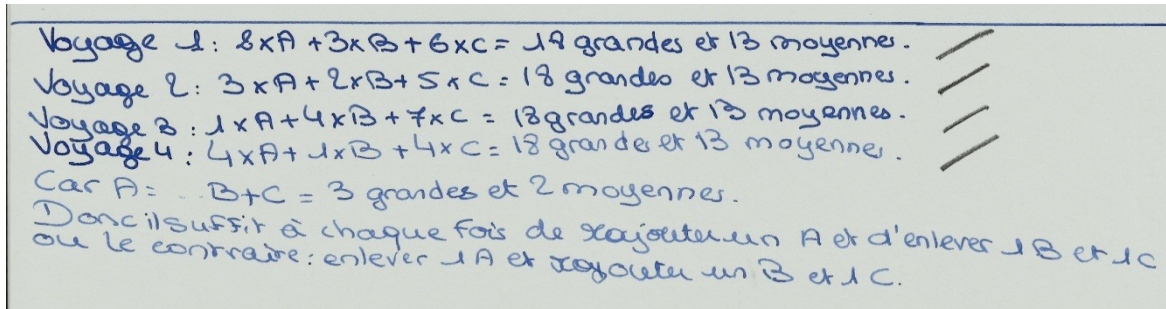 Voyage 1: 2xA + 3xB + 6xC = 18 grandes et 13 moyennes.
Voyage 2: 3xA + 2xB + 5xC = 18 grandes et 13 moyennes.
Voyage 3: 1xA + 4xB + 7xC = 18 grandes et 13 moyennes.
Voyage 4: 4xA + 1xB + 4xC = 18 grandes et 13 moyennes.
Car A = B+C = 3 grandes et 2 moyennes.
Donc il suffit à chaque fois de rajouter un A et d'enlever 1B et 1C
ou le contraire: enlever 1A et rajouter un B et 1C.